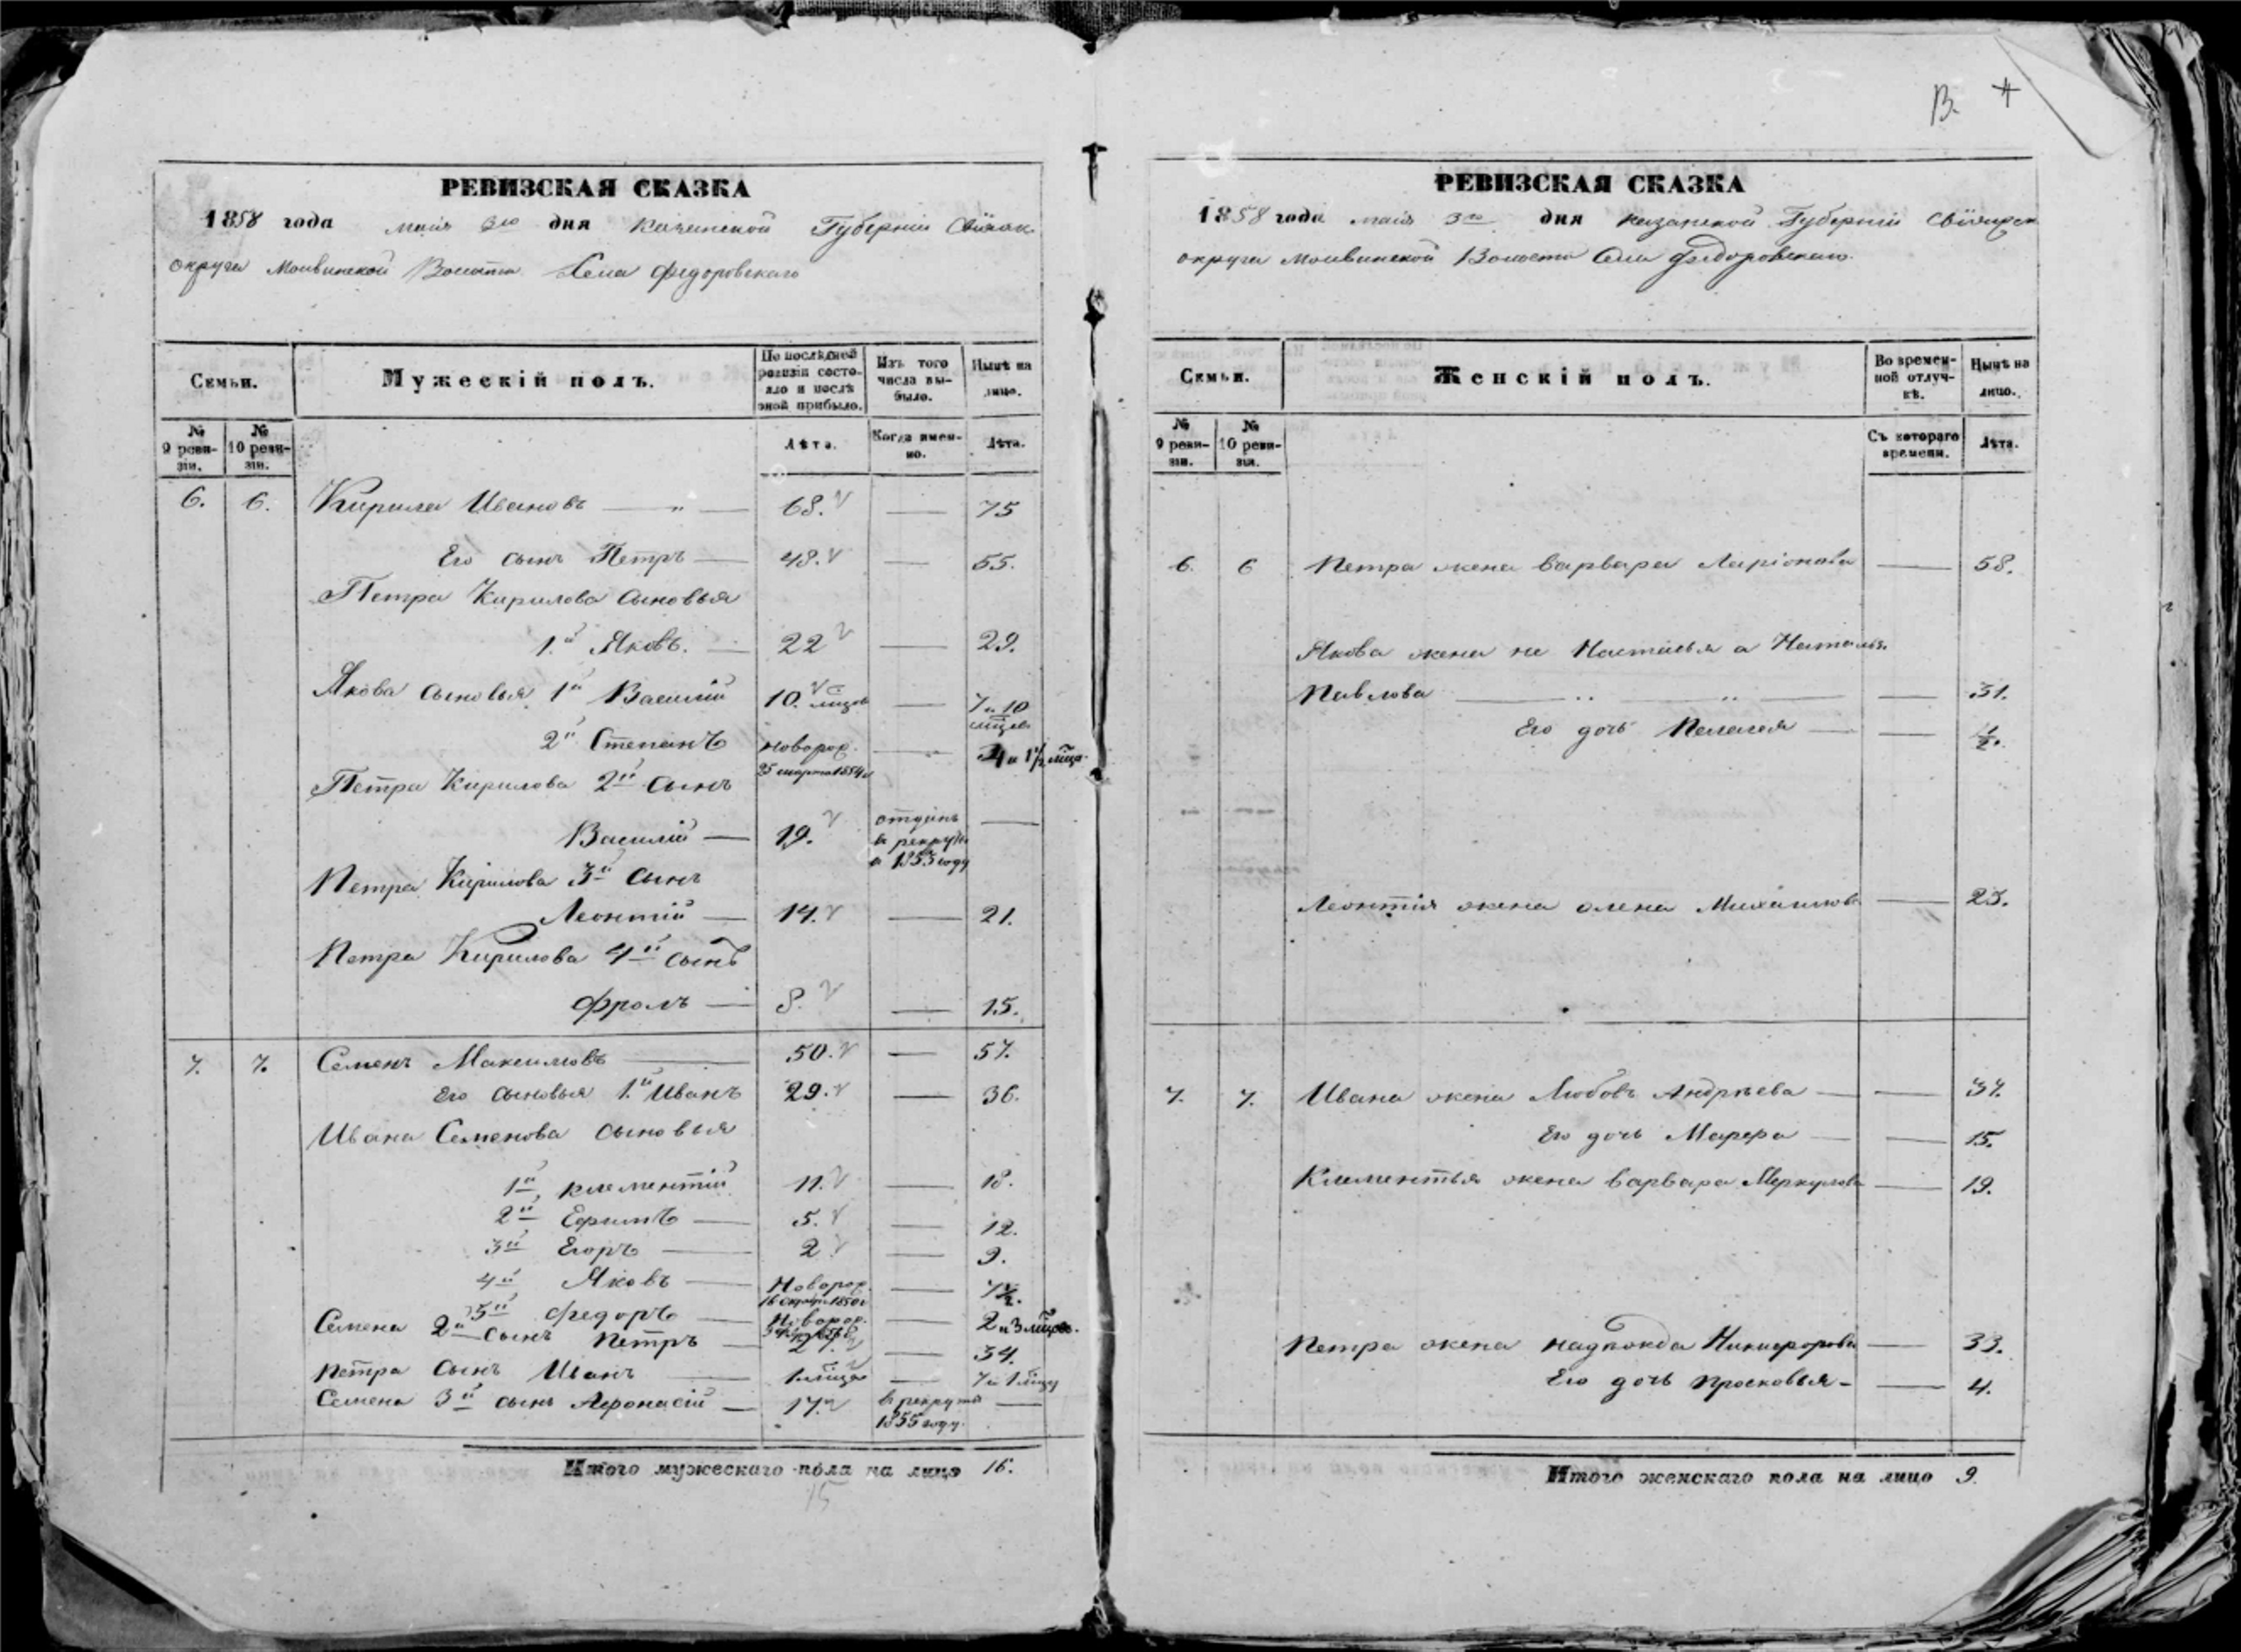 В. 4
РЕВИЗСКАЯ СКАЗКА
1858 года маія 3го дня Казанской Губерніи Свіяж.
округа Волости Села Федоровскаго
Семьи.
Мужескій полъ.
По послѣдней ревизіи состояло и послѣ оной прибыло.
Изъ того числа выбыло.
Нынѣ на лицо.
№ 9 ревизіи.
№ 10 ревизіи.
Лѣта.
Когда именно.
Лѣта.
6. 6. Кирила Ивановъ — „ — 68. — 75
Его сынъ Петръ — 48. — 55.
Петра Кирилова сыновья
1.й Яковъ. — 22 — 29.
Якова сыновья 1й Василій 10. мѣсяц — 7 и 10 мѣсяц
2й Степанъ новорож. 25 марта 1854 г — 4 и 1½ мѣся.
Петра Кирилова 2й сынъ
Василій — 19. отданъ в рекруты в 1853 году —
Петра Кирилова 3й сынъ
Леонтій — 14. — 21.
Петра Кирилова 4й сынъ
Фролъ — 8. — 15.
7. 7. Семенъ Максимовъ — 50. — 57.
Его сыновья 1.й Иванъ 29. — 36.
Ивана Семенова сыновья
1й Клементій 11. — 18.
2й Ефимъ — 5. — 12.
3й Егоръ — 2. — 9.
4й Яковъ — Новорож. 16 октября 1850 г — 7½.
5й Федоръ — Новорож. — 2 и 3 мѣсяц.
Семена 2й сынъ Петръ — 27. — 34.
Петра сынъ Иванъ — 1 мѣсяц — 7 и 1 мѣсяц
Семена 3й сынъ Афонасій — 17. в рекруты 1855 году. —
Итого мужескаго пола на лицо 16.
15
РЕВИЗСКАЯ СКАЗКА
1858 года маія 3го дня Казанской Губерніи Свіяжск
округа Волости Села Федоровскаго.
Семьи.
Женскій полъ.
Во временной отлучкѣ.
Нынѣ на лицо.
№ 9 ревизіи.
№ 10 ревизіи.
Съ котораго времени.
Лѣта.
6. 6 Петра жена варвара Ларіонова — 58.
Якова жена не Настасья а Наталья
Павлова — „ — „ — — 31.
Его дочь Пелагея — — ½.
Леонтія жена олена Михаилов — 23.
7. 7. Ивана жена Любовь Андрѣева — — 37.
Его дочь Марфа — — 15.
Клементья жена варвара Меркулова — 19.
Петра жена надѣжда Никифорова — 33.
Его дочь Просковья — — 4.
Итого женскаго пола на лицо 9.